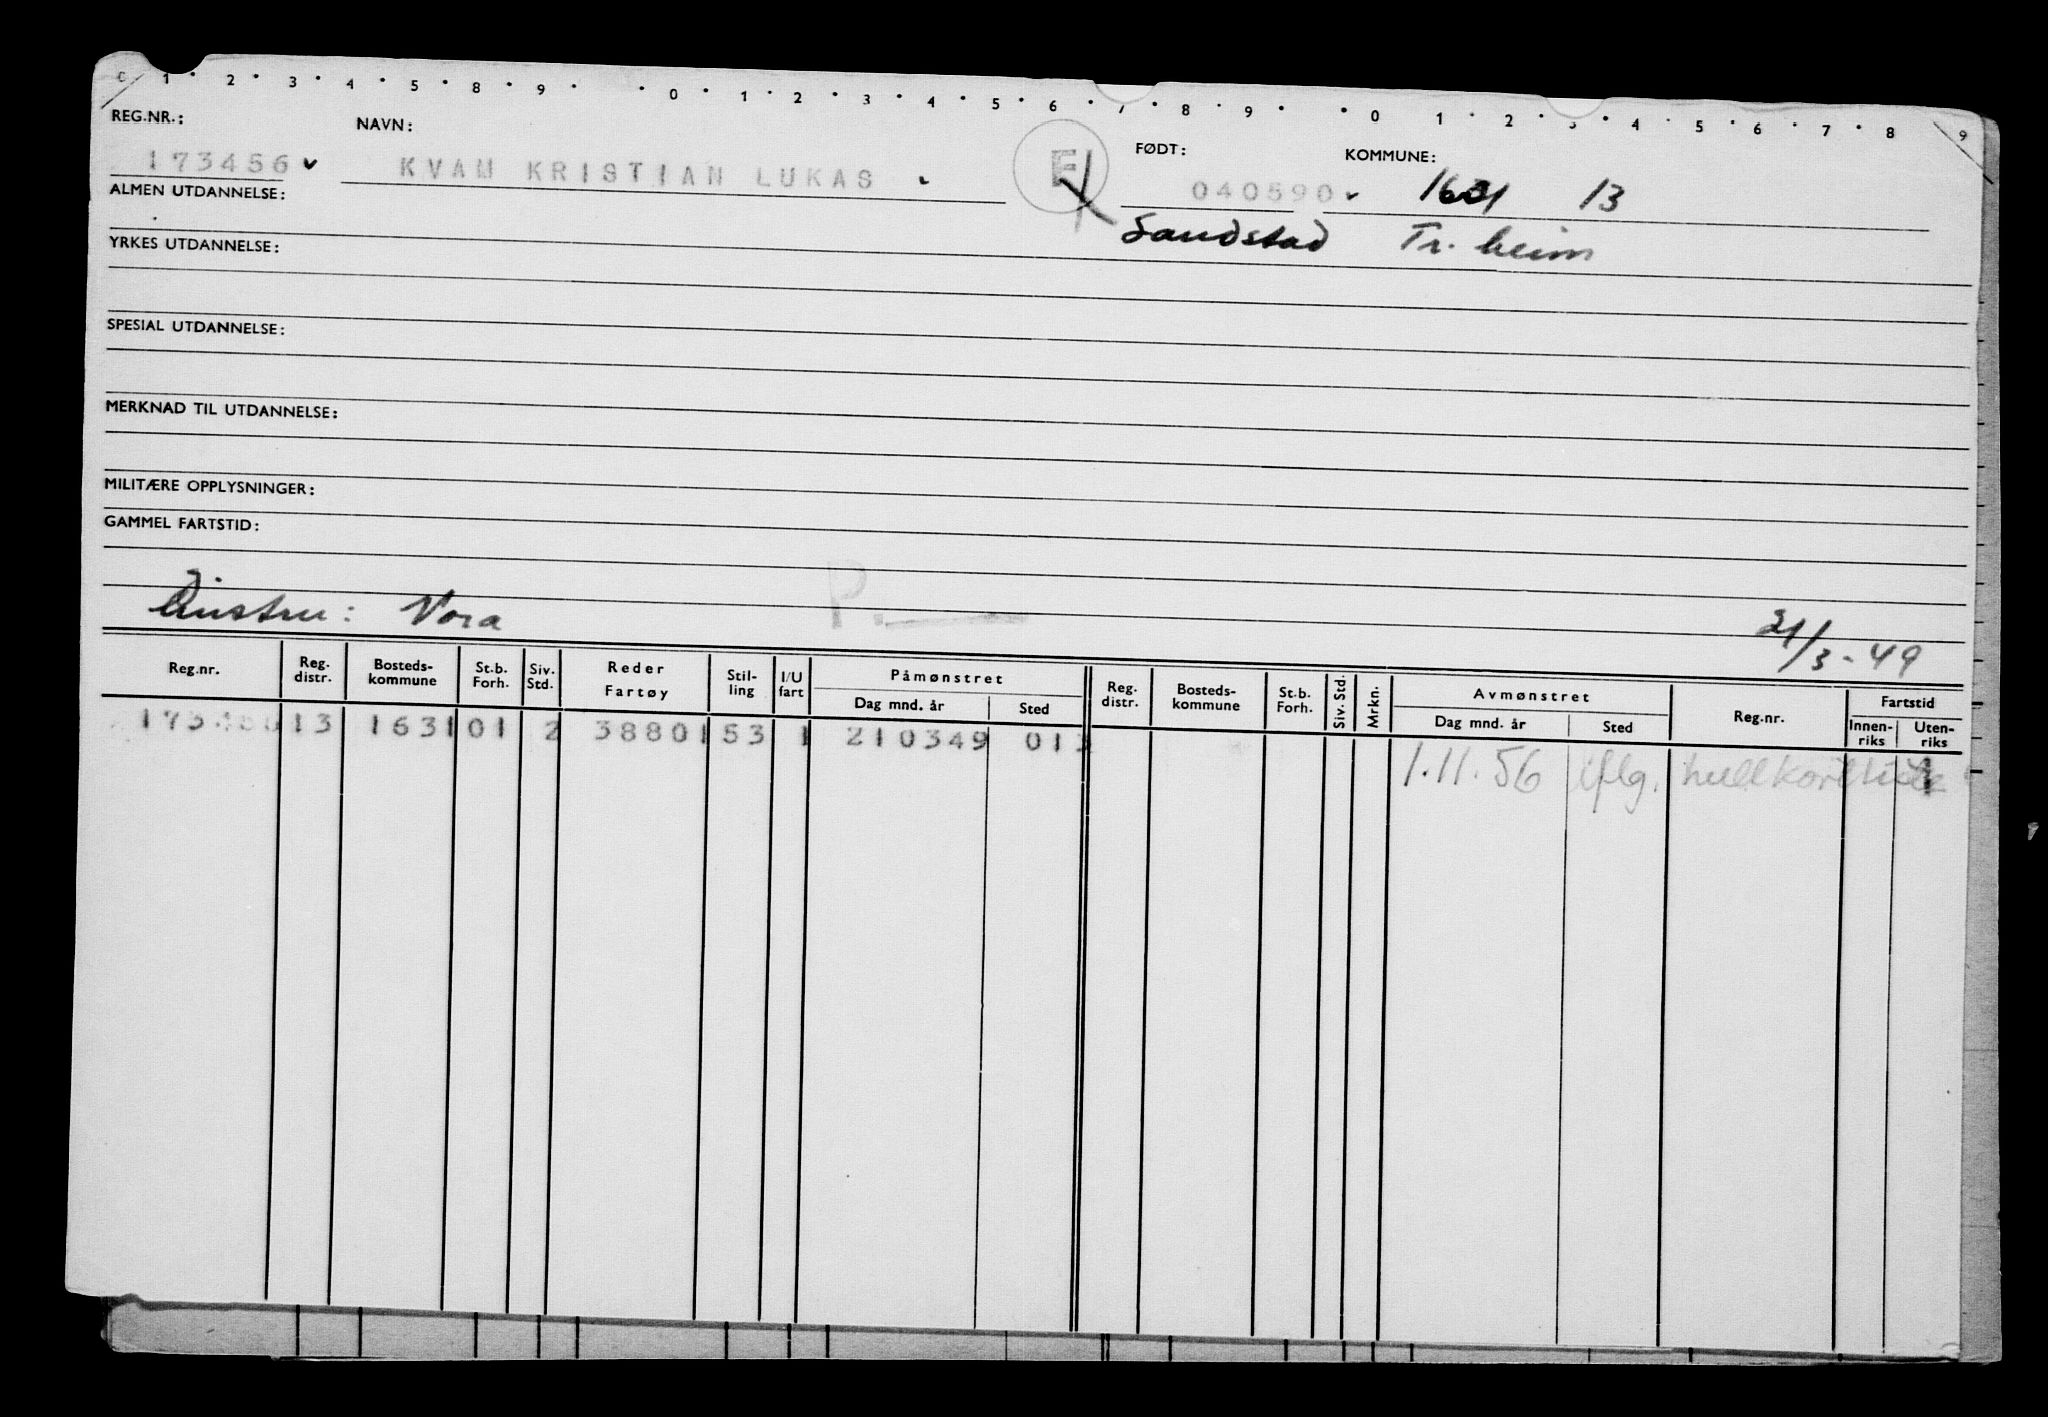 0 1 2 3 4 5 8 9 0 1 2 3 4 5 6 7 8 9 0 1 2 3 4 5 6 7 8 9
REG.NR.: NAVN: FØDT: KOMMUNE:
173456 KVAM KRISTIAN LUKAS E 040590 1631 13
ALMEN UTDANNELSE: Sandstad Tr.heim
YRKES UTDANNELSE:
SPESIAL UTDANNELSE:
MERKNAD TIL UTDANNELSE:
MILITÆRE OPPLYSNINGER:
GAMMEL FARTSTID:
P.
: Nora 21/3-49
Reg.nr. Reg. distr. Bosteds-kommune St.b. Forh. Siv. Std. Reder Fartøy Stil-ling I/U fart Påmønstret Dag mnd. år Sted Reg. distr. Bosteds-kommune St.b. Forh. Siv. Std. Mrkn. Avmønstret Dag mnd. år Sted Reg.nr. Fartstid Innen-riks Uten-riks
173456 13 1631 01 2 38801 53 1 210349 013
1.11.56 iflg. hullkortliste